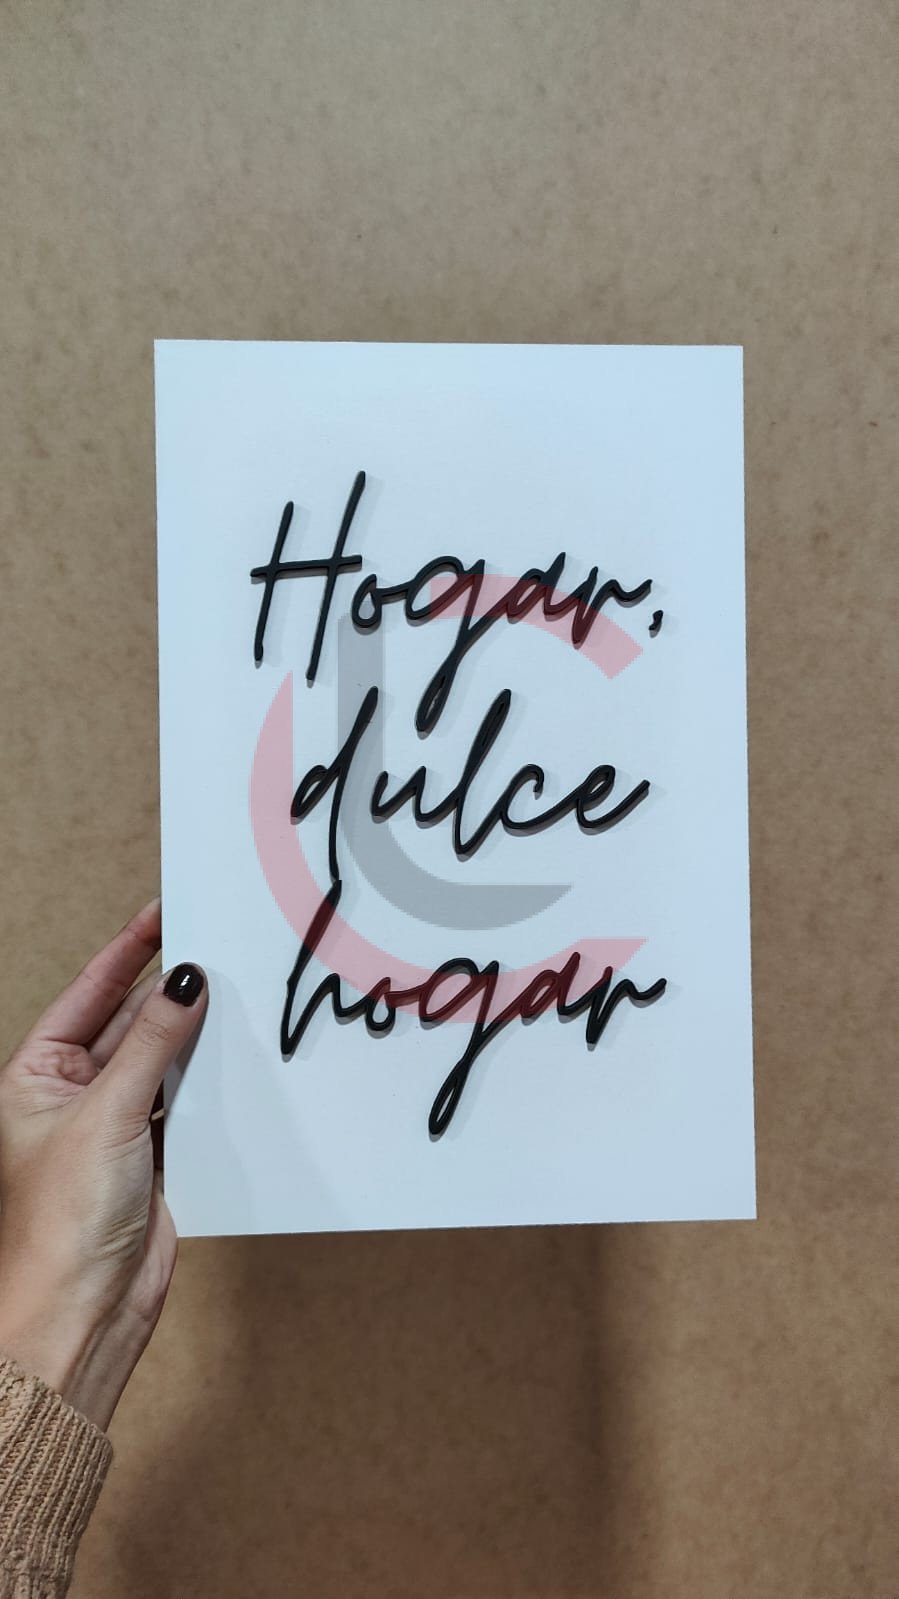 Hogar,
dulce
hogar